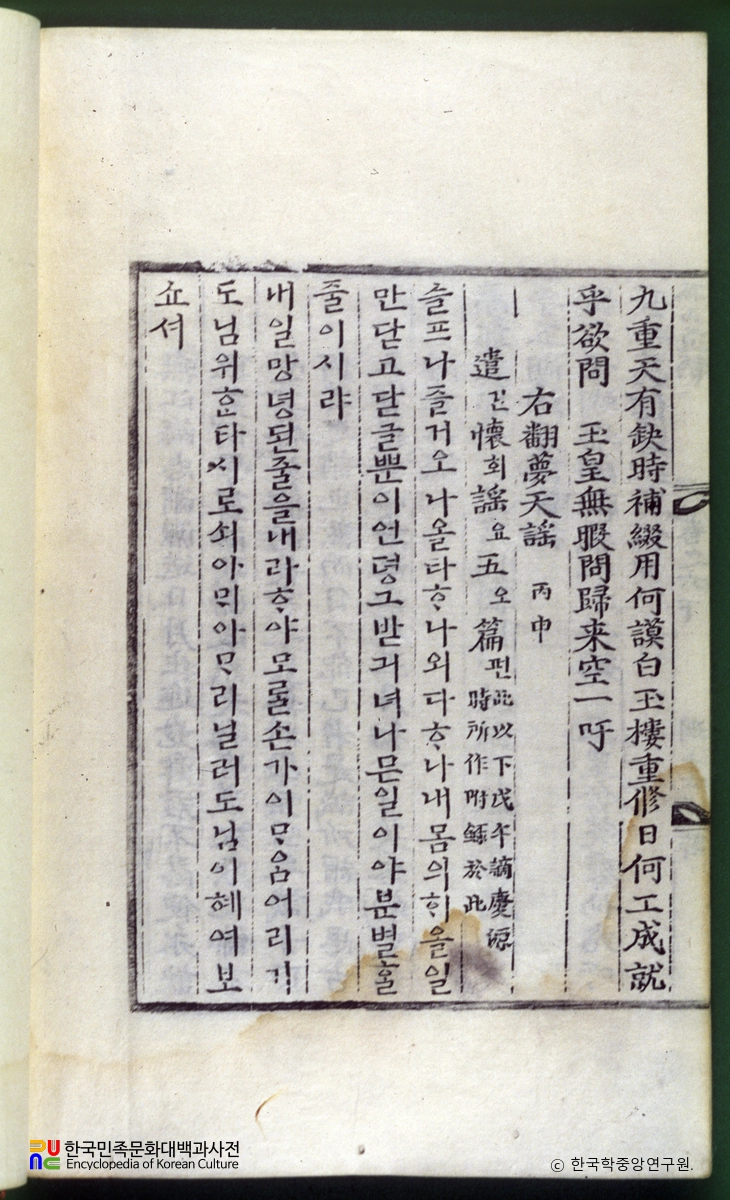 九重天有缺時補綴用何謨白玉樓重修日何工成就
乎欲問 玉皇無暇問歸来空一吁
右翻夢天謠 丙申
遣견懷회謠요五오篇편 此以下戊午謫慶源時所作附錄於此
슬프나즐거오나올타ᄒᆞ나외다ᄒᆞ나내몸의ᄒᆡ올일
만닫고닫글뿐이언뎡그받긔녀나믄일이야분별ᄒᆞᆯ
줄이시랴
내일망녕된줄을내라ᄒᆞ야모ᄅᆞᆯ손가이ᄆᆞᄋᆞᆷ어리기
도님위ᄒᆞᆫ타시로쇠아ᄆᆡ아ᄆᆞ리닐러도님이혜여보
쇼셔
한국민족문화대백과사전
Encyclopedia of Korean Culture
ⓒ 한국학중앙연구원.